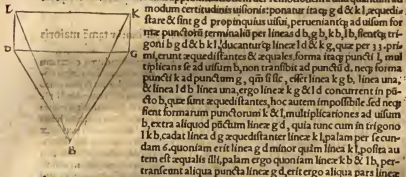 L K
modum certitudinis uisionis:ponatur itaq; g d & k l,æquedi-
stare & sint g d propinquius uisui, perueniantq; ad uisum for
mæ punctorũ terminaliũ per lineas d b, g b, k b, l b, fientq; tri-
goni b g d & b k l, ducanturq; lineæ l d & k g, quæ per 33. pri-
D G
mi, erunt æquedistantes & æquales, forma itaq; puncti l, mul
tiplicans se ad uisum b, non transibit ad punctũ d, neq; forma
puncti k ad punctum g, qm̃ si sic, esset linea k g b, linea una,
& linea l d b linea una, ergo lineæ k g & l d concurrent in pũ-
cto b, quæ sunt æquedistantes, hoc autem impossibile. sed neq;
fient formarum punctorum k & l, multiplicationes ad uisum
b, extra aliquod pũctum lineæ g d, quia tunc cum in trigono
l k b, cadat linea d g æquedistanter lineæ k l, palam per secun-
dam 6. quoniam erit linea g d minor quàm linea k l, posita au
tem est æqualis illi, palam ergo quoniam lineæ k b & l b, per-
B
transeunt aliqua puncta lineæ g d, erit ergo aliqua pars lineæ